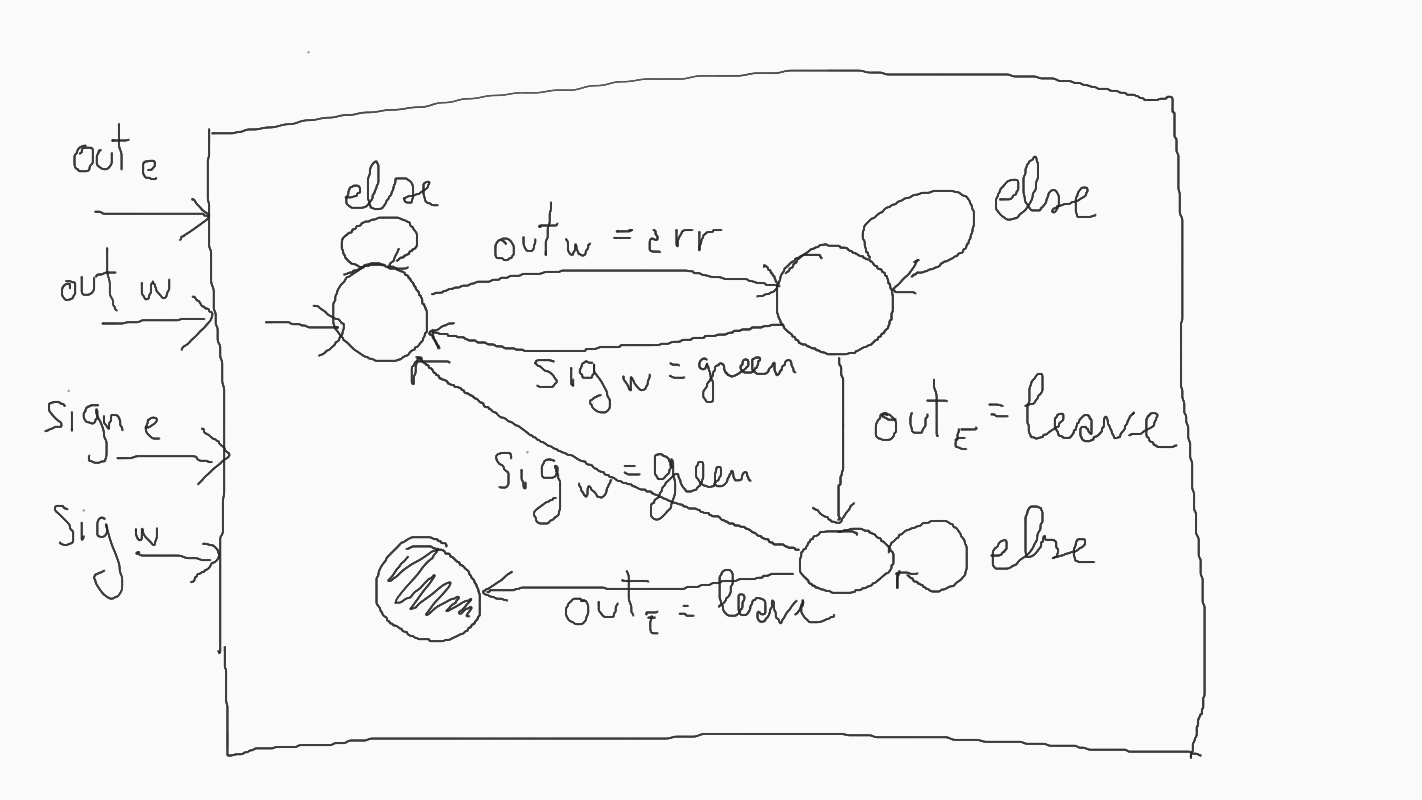 out e
out w
sign e
sig w
else
out w = err
else
sig w = green
out E = leave
sig w = green
else
out E = leave